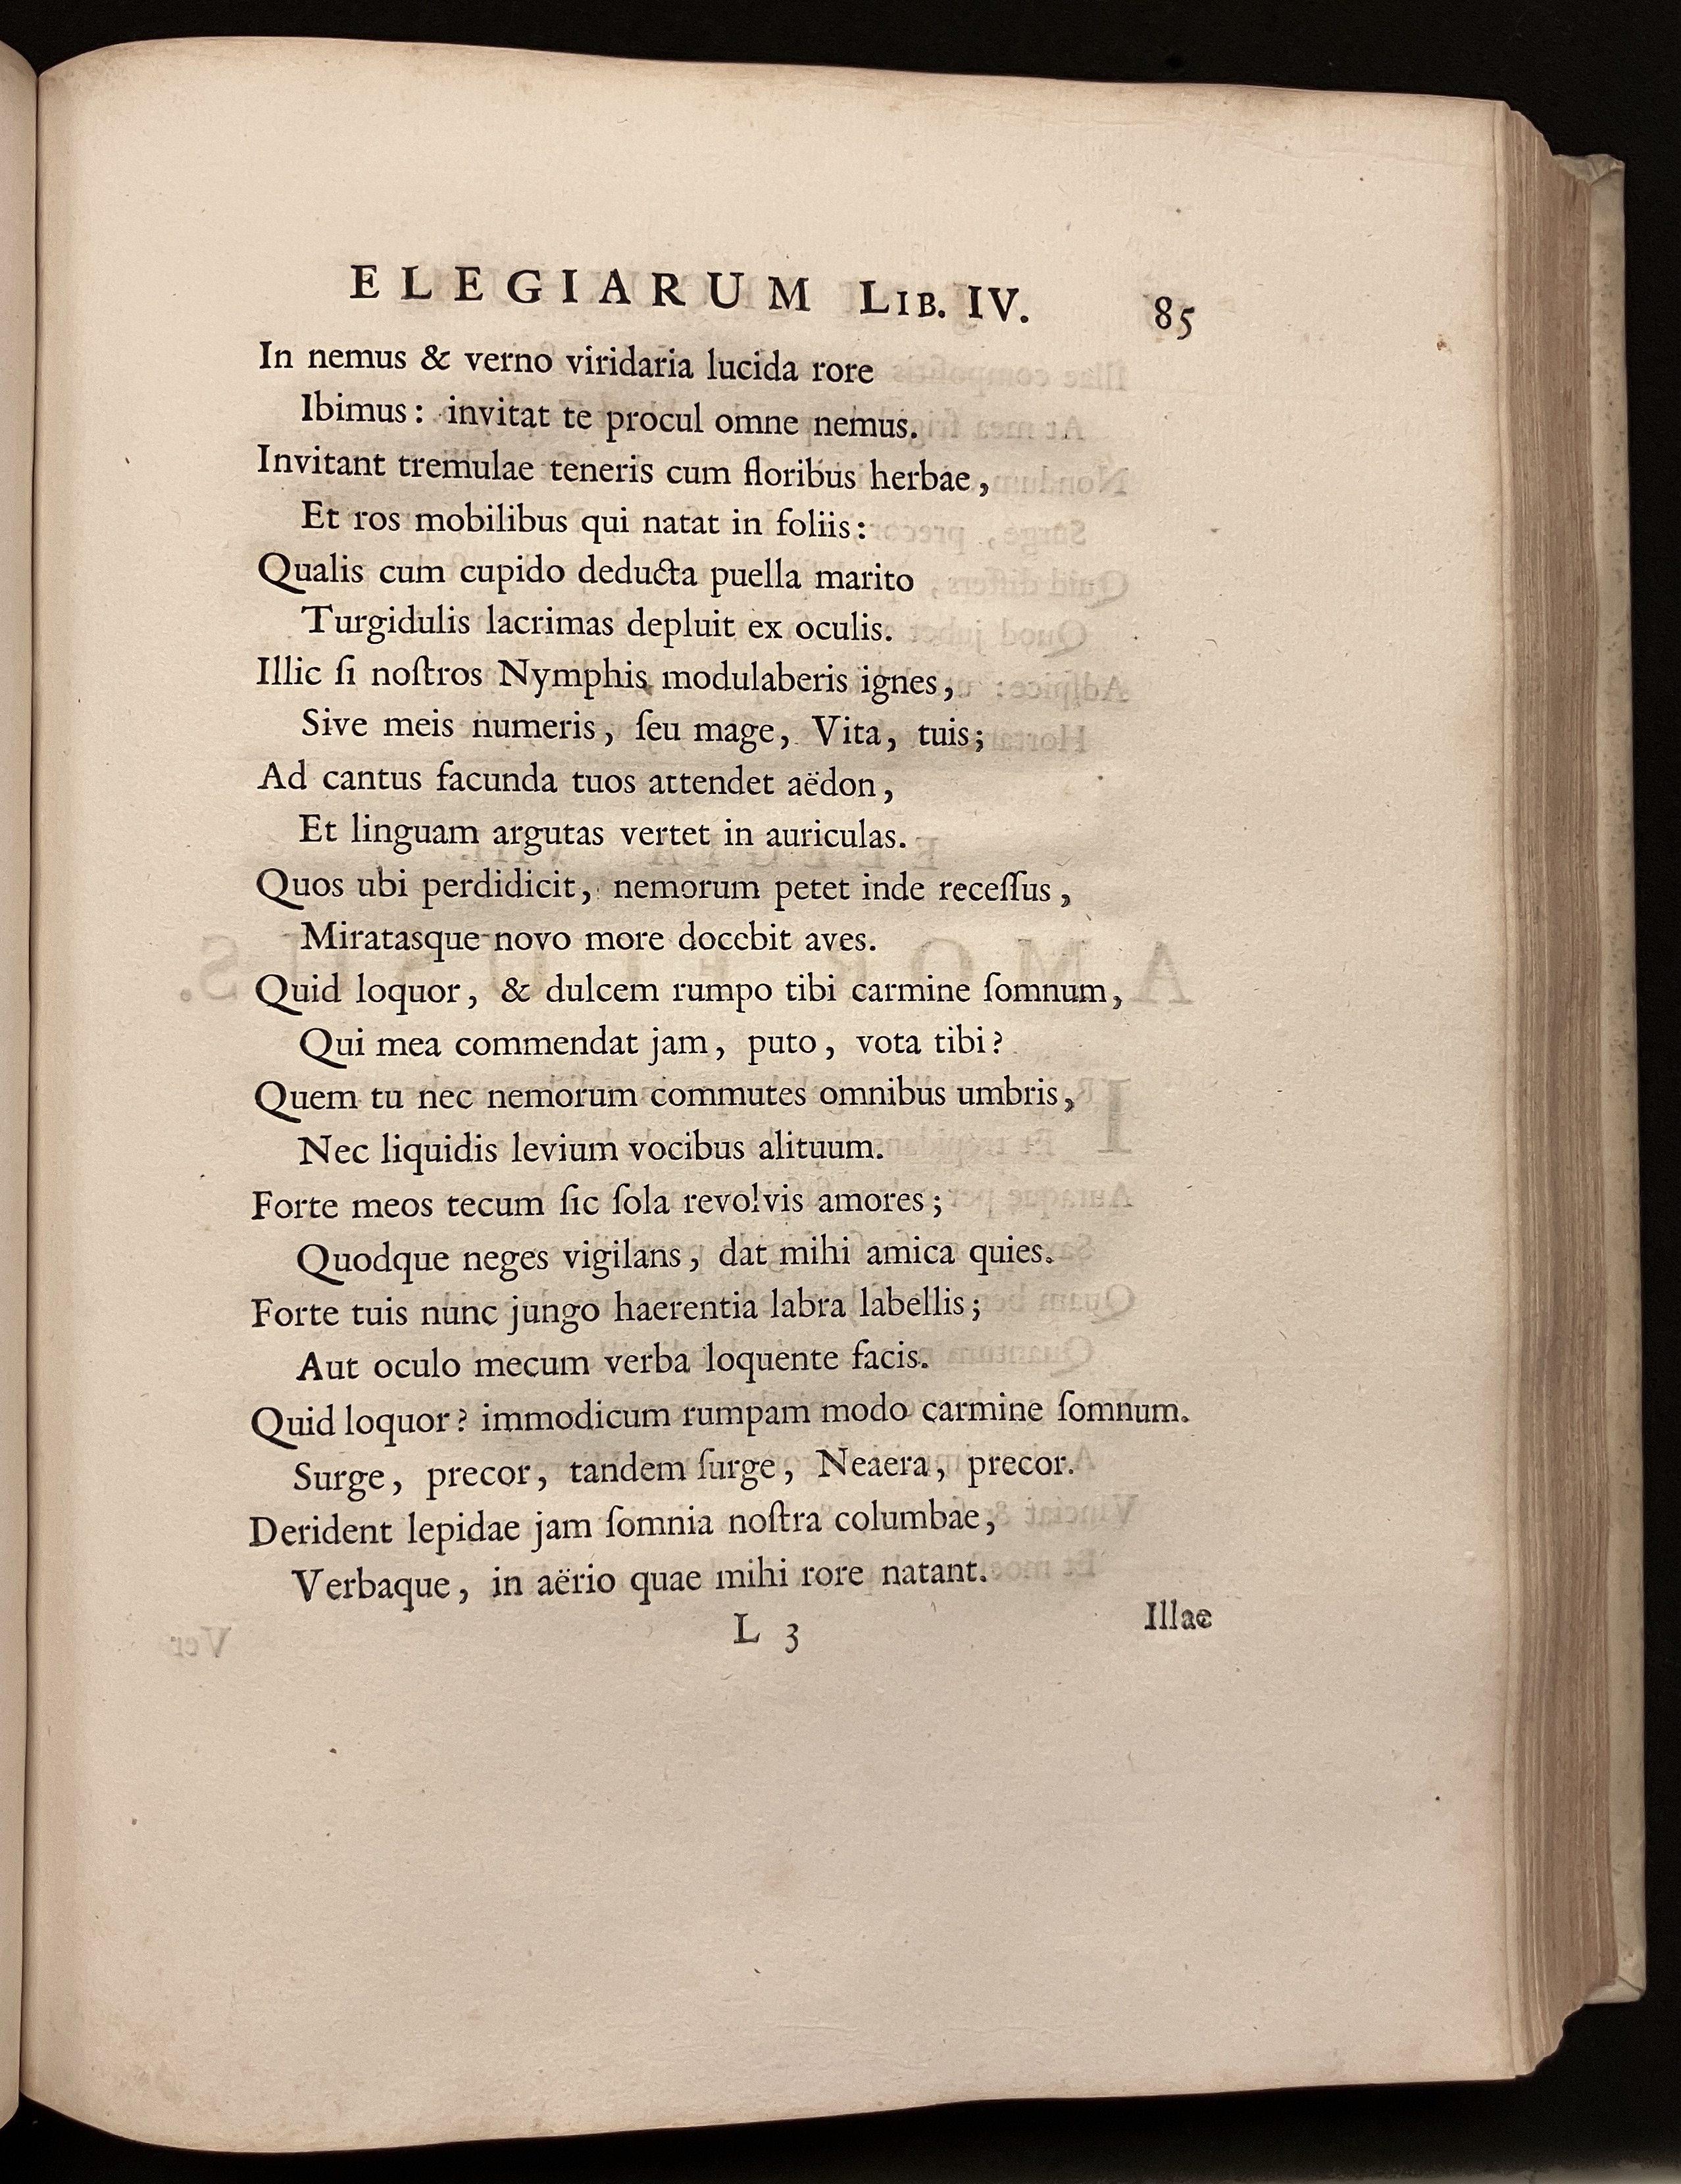 ELEGIARUM LIB. IV. 85
In nemus & verno viridaria lucida rore
Ibimus: invitat te procul omne nemus.
Invitant tremulae teneris cum floribus herbae,
Et ros mobilibus qui natat in foliis:
Qualis cum cupido deducta puella marito
Turgidulis lacrimas depluit ex oculis.
Illic ſi noſtros Nymphis modulaberis ignes,
Sive meis numeris, ſeu mage, Vita, tuis;
Ad cantus facunda tuos attendet aëdon,
Et linguam argutas vertet in auriculas.
Quos ubi perdidicit, nemorum petet inde receſſus,
Miratasque novo more docebit aves.
Quid loquor, & dulcem rumpo tibi carmine ſomnum,
Qui mea commendat jam, puto, vota tibi?
Quem tu nec nemorum commutes omnibus umbris,
Nec liquidis levium vocibus alituum.
Forte meos tecum ſic ſola revolvis amores;
Quodque neges vigilans, dat mihi amica quies.
Forte tuis nunc jungo haerentia labra labellis;
Aut oculo mecum verba loquente facis.
Quid loquor? immodicum rumpam modo carmine ſomnum.
Surge, precor, tandem ſurge, Neaera, precor.
Derident lepidae jam ſomnia noſtra columbae,
Verbaque, in aërio quae mihi rore natant.
L 3 Illae